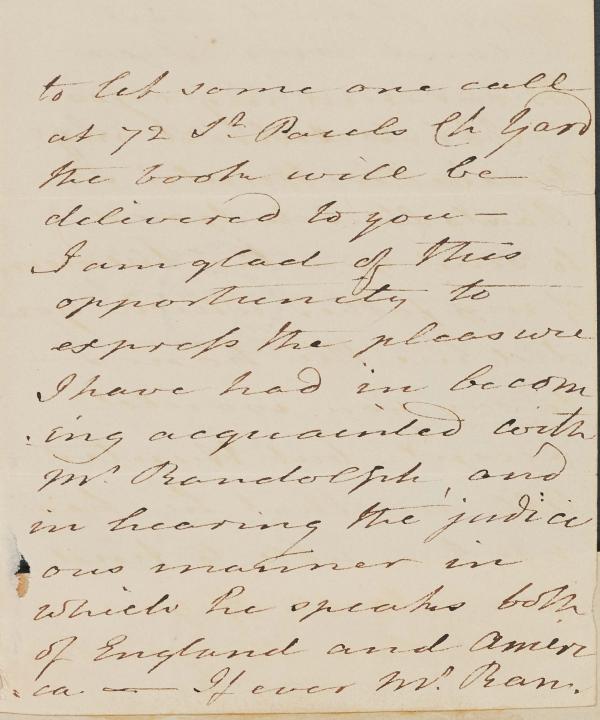 to let some one call
at 72 St Pauls Ch Yard
the book will be
delivered to you —
I am glad of this
opportunity to
express the pleasure
I have had in becom
:ing acquainted with
Mr. Randolph, and
in hearing the judici
ous manner in
which he speaks both
of England and Ameri
:ca — If ever Mr. Ran.